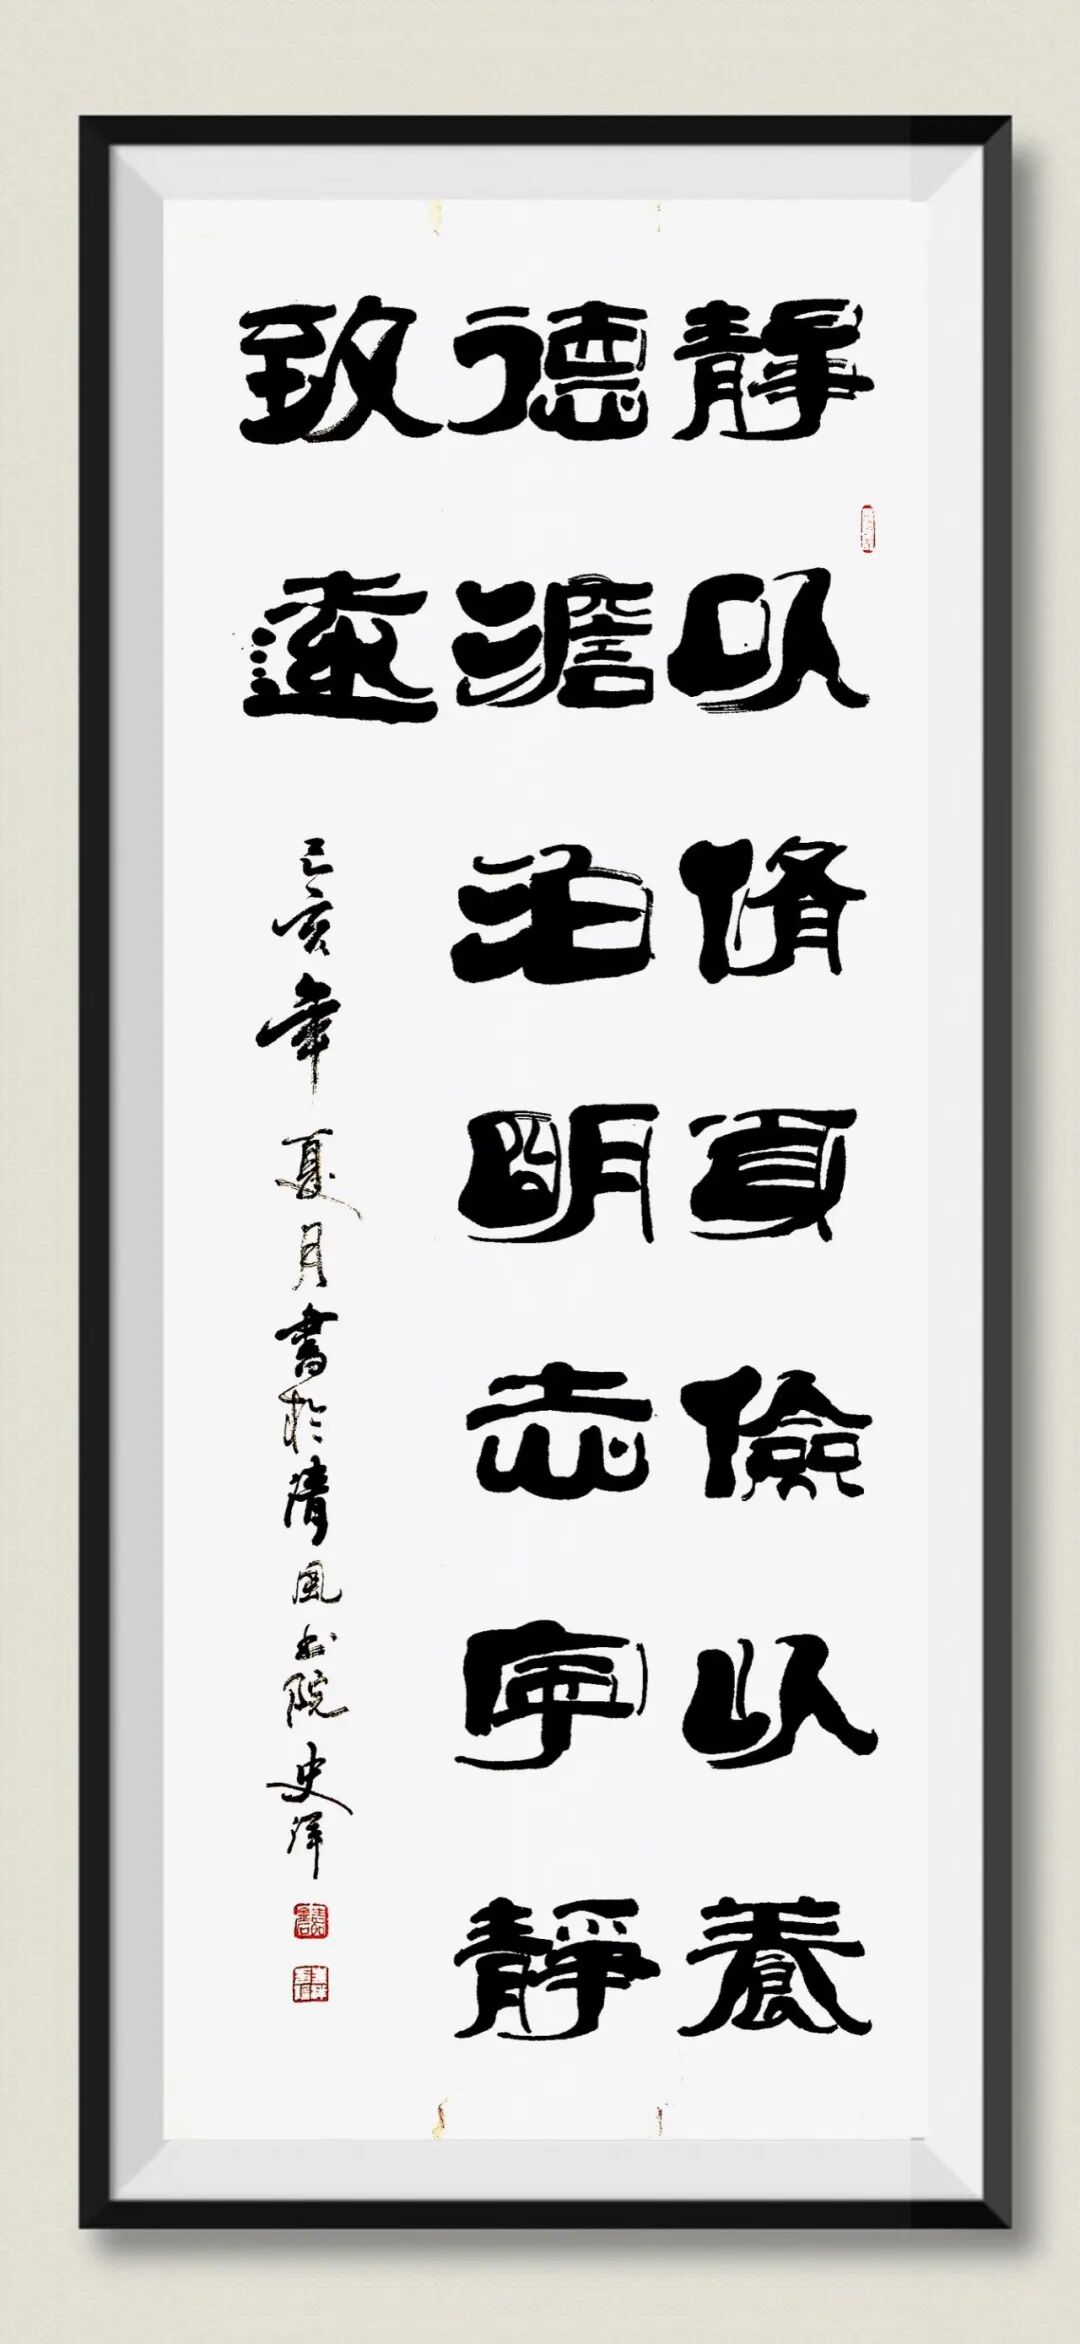 靜以脩身儉以養
德澹泊明志寧靜
致遠
己亥年夏月書於清風書院史